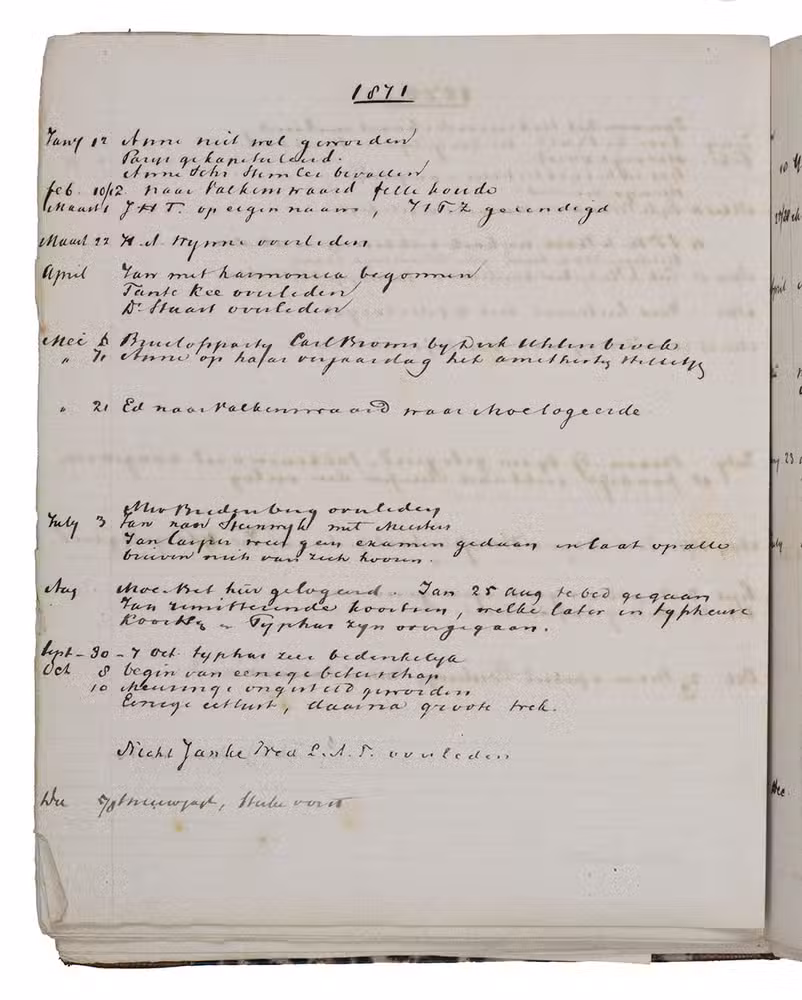 1871
Jany 12 Anne niet wel geworden
Parys gekapituleerd.
Anne bevallen
feb. 10/12 naar Valkenswaard felle koude
Maart 1 J H T. op eigen naam, geeindigd
Maart 22 H. A. Wynne overleden
April Jan met harmonica begonnen
Tante Kee overleden
Dr Stuart overleden
Mei Bruiloftsparty Carl Broms by Dirk Uhlenbroek
" Anne op haar verjaardag het
" 21 Ed naar Valkenswaard waar Moe logeerde
Mev Bredenberg overleden
July 3 Jan naar Steenwyk met Meester
Jan Casper geen examen gedaan en laat op alle
brieven niets van zich hooren.
Aug Moe Bet hier gelogeerd. Jan 25 aug te bed gegaan
Jan remitteerende koortsen, welke later in typheuse
Typhus zyn overgegaan.
Sept - 30 - 7 Oct. typhus zeer bedenkelyk
Oct 8 begin van eenige beterschap
10 ongesteld geworden
Eenige eetlust, daarna groote trek.
Nicht Janke Wed L. A. T. overleden
Dec